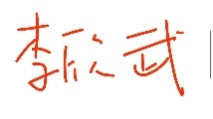 李欣武